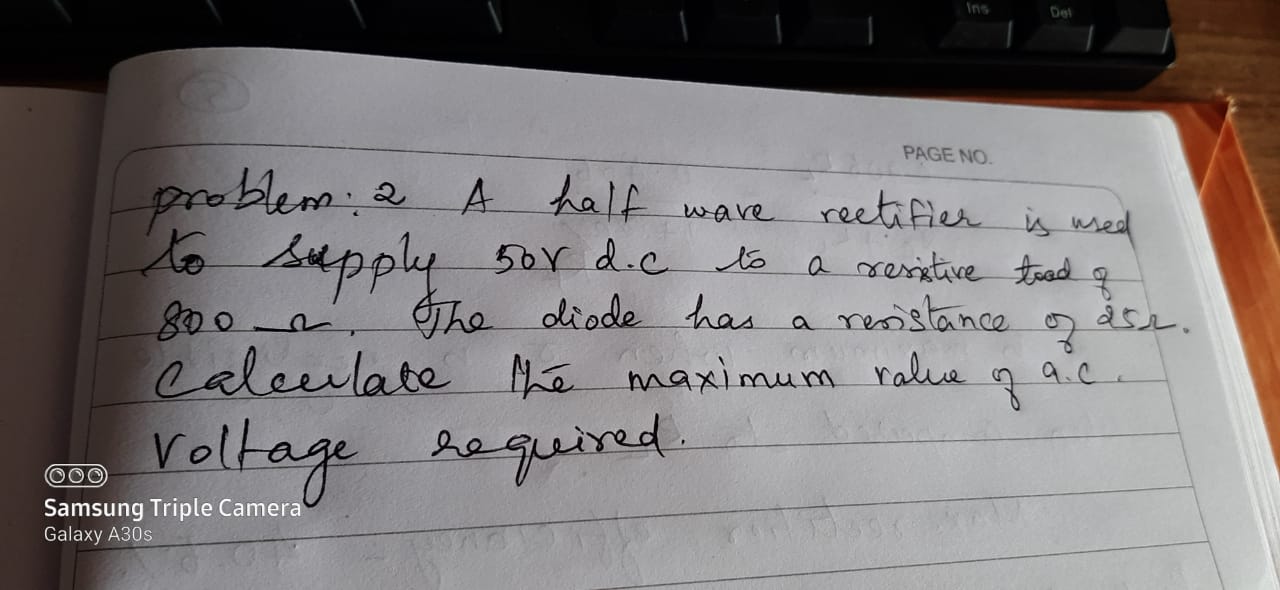 Ins
Del
PAGE NO.
problem: 2 A half wave rectifier is used
to supply 50V d.c to a resistive load of
800 Ω. The diode has a resistance of 25Ω.
Calculate the maximum value of a.c.
voltage required.
Samsung Triple Camera
Galaxy A30s